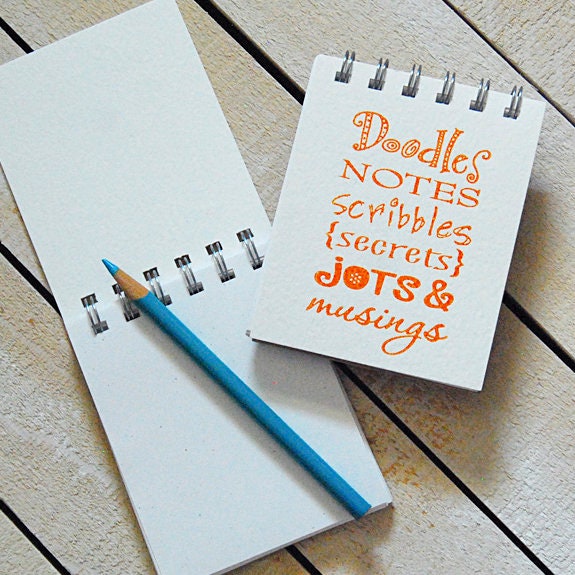 Doodles
NOTES
scribbles
{secrets}
JOTS &
musings